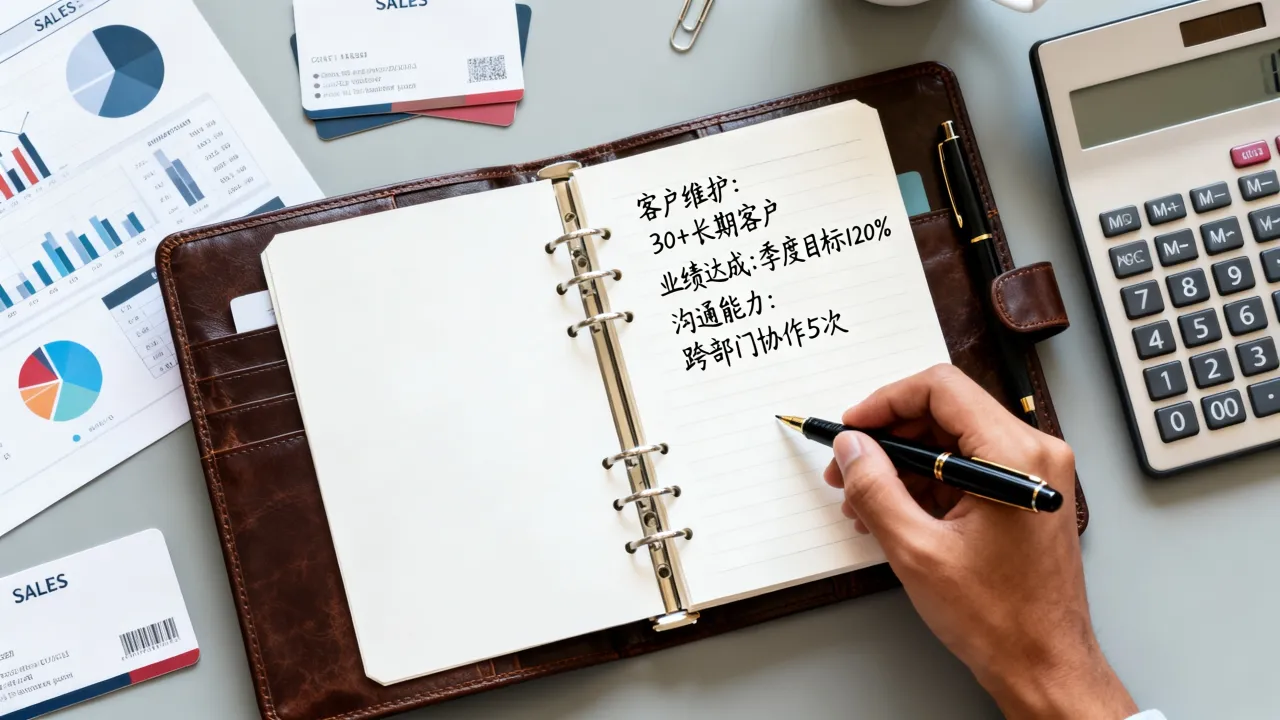 SALES
SALES
客户维护：
30+长期客户
业绩达成：季度目标120%
沟通能力：
跨部门协作5次
SALES
M+
M-
M-
M-
M-
7
8
9
4
5
6
1
2
3
0
00
.